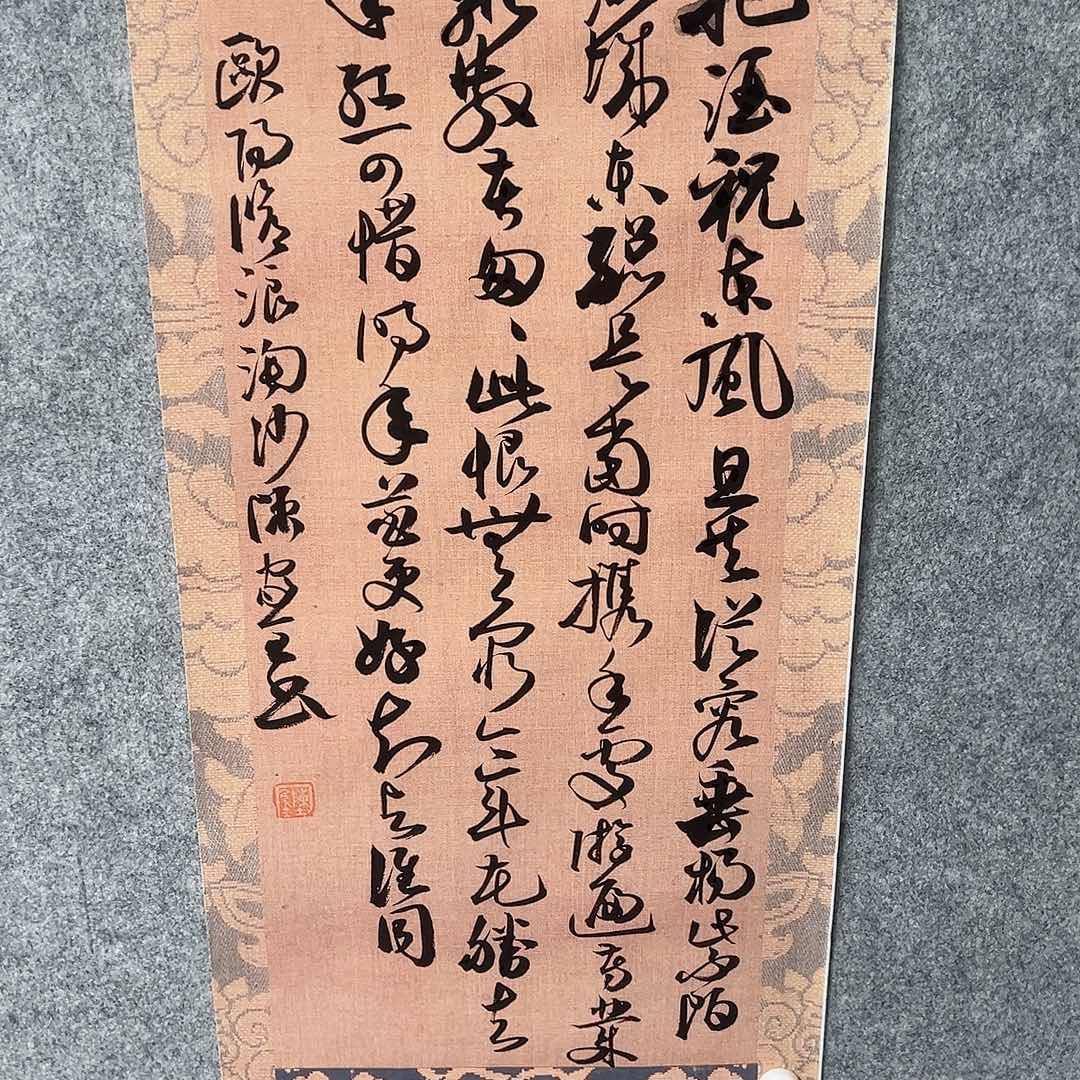 把酒祝東風且共從容垂楊紫陌
洛城東總是當時攜手處游遍芳叢
聚散苦匆々此恨無窮今年花勝去
年紅可惜明年花更好知与誰同
歐陽脩浪淘沙陳書